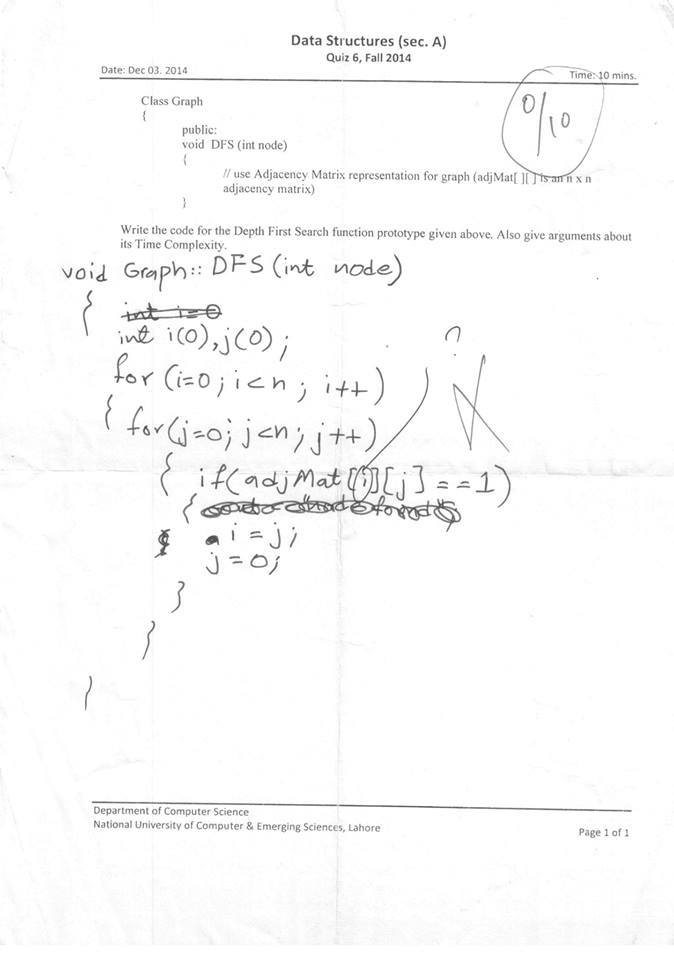 Data Structures (sec. A)
Quiz 6, Fall 2014
Date: Dec 03. 2014
Time: 10 mins.
0/10
Class Graph
{
public:
void DFS (int node)
{
// use Adjacency Matrix representation for graph (adjMat[ ][ ] is an n x n
adjacency matrix)
}
Write the code for the Depth First Search function prototype given above. Also give arguments about
its Time Complexity.
void Graph:: DFS (int node)
{ int i=0
int i(0), j(0);
?
for (i=0; i<n; i++)
{ for(j=0; j<n; j++)
{ if(adjMat[i][j] ==1)
{
i = j;
j = 0;
}
}
}
Department of Computer Science
National University of Computer & Emerging Sciences, Lahore
Page 1 of 1